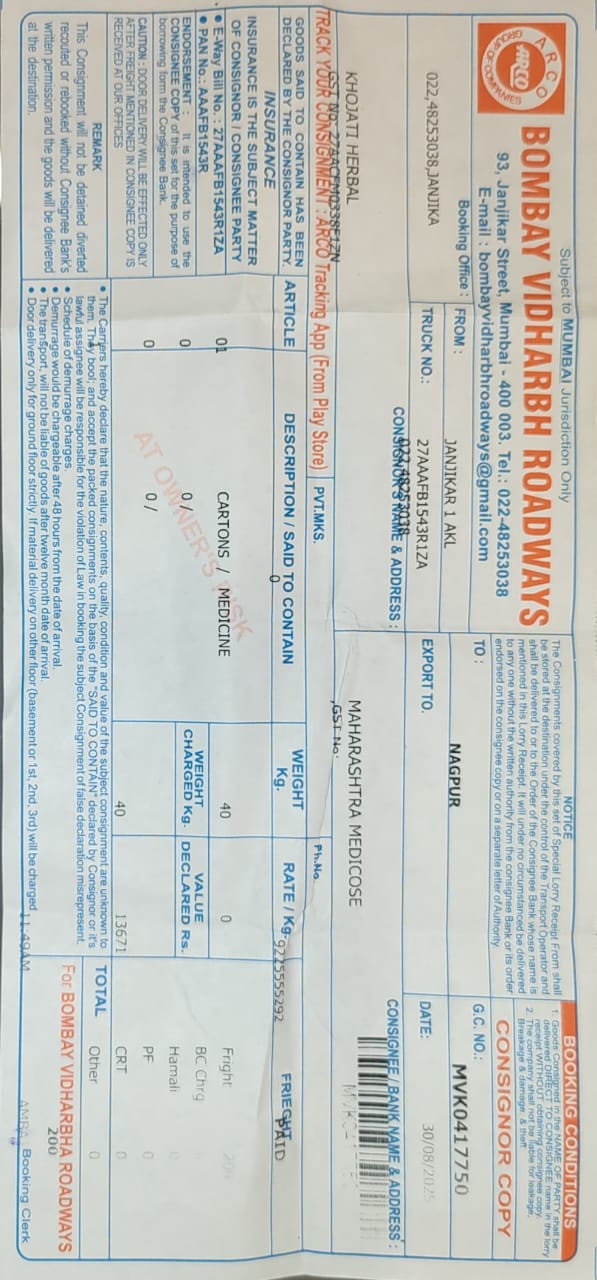 Subject to MUMBAI Jurisdiction Only
ARCO
GROUP OF COMPANIES
ARCO
BOMBAY VIDHARBH ROADWAYS
93, Janjikar Street, Mumbai - 400 003. Tel.: 022-48253038
E-mail : bombayvidharbhroadways@gmail.com
NOTICE
The Consignments covered by this set of Special Lorry Receipt From shall
be stored at the destination under the control of the Transport Operator and
shall be delivered to or to the Order of the Consignee Bank whose name is
mentioned in this Lorry Receipt. It will under no circumstanced be delivered
to any one without the written authority from the consignee Bank or its order
endorsed on the consignee copy or on a separate letter of Authority.
BOOKING CONDITIONS
1. Goods Consigned in the NAME OF PARTY shall be
delivered DIRECT TO CONSIGNEE name in the lorry
receipt WITHOUT obtaining consignee copy.
2. The company shall not be liable for leakage,
Breakage & damage, & theft
CONSIGNOR COPY
Booking Office :
022,48253038,JANJIKA
FROM :
JANJIKAR 1 AKL
TO :
NAGPUR
G.C. NO.:
MVK0417750
TRUCK NO.:
27AAAFB1543R1ZA
EXPORT TO.
DATE:
30/08/2025
CONSIGNOR'S NAME & ADDRESS :
022,48253038
CONSIGNEE / BANK NAME & ADDRESS :
KHOJATI HERBAL
MAHARASHTRA MEDICOSE
GST No:
TRACK YOUR CONSIGNMENT : ARCO Tracking App (From Play Store)
PVT.MKS.
Ph.No.
9225555292
GOODS SAID TO CONTAIN HAS BEEN
DECLARED BY THE CONSIGNOR PARTY.
INSURANCE
INSURANCE IS THE SUBJECT MATTER
OF CONSIGNOR / CONSIGNEE PARTY
• E-Way Bill No. : 27AAAFB1543R1ZA
• PAN No.: AAAFB1543R
ENDORSEMENT : It is intended to use the
CONSIGNEE COPY of this set for the purpose of
borrowing form the Consignee Bank.
CAUTION : DOOR DELIVERY WILL BE EFFECTED ONLY
AFTER FREIGHT MENTIONED IN CONSIGNEE COPY IS
RECEIVED AT OUR OFFICES
REMARK
This Consignment will not be detained diverted
recouted or rebooked without Consignee Bank's
written permission and the goods will be delivered
at the destination.
ARTICLE
DESCRIPTION / SAID TO CONTAIN
0
WEIGHT
Kg.
RATE / Kg.
FRIEGHT
PAID
01
CARTONS / MEDICINE
40
0
Fright
200
0
0 /
WEIGHT
CHARGED Kg.
VALUE
DECLARED Rs.
BC Chrg
0
Hamali
0
0
0 /
PF
0
40
13671
CRT
0
AT OWNER'S RISK
Other
0
• The Carriers hereby declare that the nature, contents, quality, condition and value of the subject consignment are unknown to
them. They bool; and accept the packed consignments on the basis of the "SAID TO CONTAIN" declared by Consignor or it's
lawful assignee will be responsible for the violation of Law in booking the subject Consignment of false declaration misrepresent.
• Schedule of demurrage charges.
• Demurrage would be chargeable after 48 hours from the date of arrival.
• The transport, will not be liable of goods after twelve month date of arrival.
• Door delivery only for ground floor strictly. If material delivery on other floor (basement or 1st, 2nd, 3rd) will be charged
11:49AM
TOTAL
200
For BOMBAY VIDHARBHA ROADWAYS
Booking Clerk